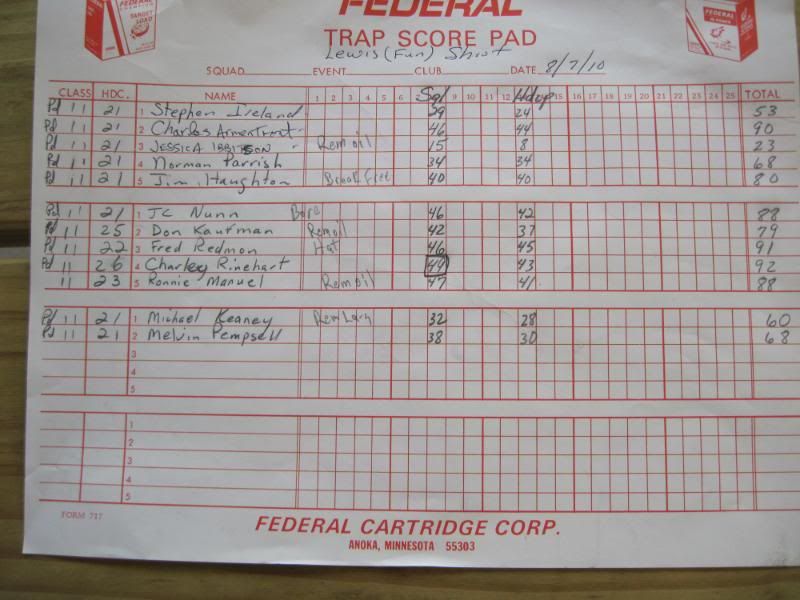 FEDERAL
TRAP SCORE PAD
Lewis (Fun) Shoot
SQUAD EVENT CLUB DATE 8/7/10
CLASS HDC. NAME 1 2 3 4 5 6 Sgl 9 10 11 12 Hdcp 15 16 17 18 19 20 21 22 23 24 25 TOTAL
Pd 11 21 1 Stephen Ireland 29 24 53
Pd 11 21 2 Charles Armentrout 46 44 90
Pd 11 21 3 JESSICA IBBITSON Rem oil 15 8 23
Pd 11 21 4 Norman Parrish 34 34 68
Pd 11 21 5 Jim Haughton Break Free 40 40 80
Pd 11 21 1 JC Nunn Bore 46 42 88
Pd 11 25 2 Don Kaufman Rem oil 42 37 79
Pd 11 22 3 Fred Redmon Hat 46 45 91
Pd 11 26 4 Charley Rinehart 49 43 92
11 23 5 Ronnie Manuel Rem oil 47 41 88
Pd 11 21 1 Michael Keaney Rem 32 28 60
Pd 11 21 2 Melvin Pempsell 38 30 68
3
4
5
1
2
3
4
5
FORM 717
FEDERAL CARTRIDGE CORP.
ANOKA, MINNESOTA 55303